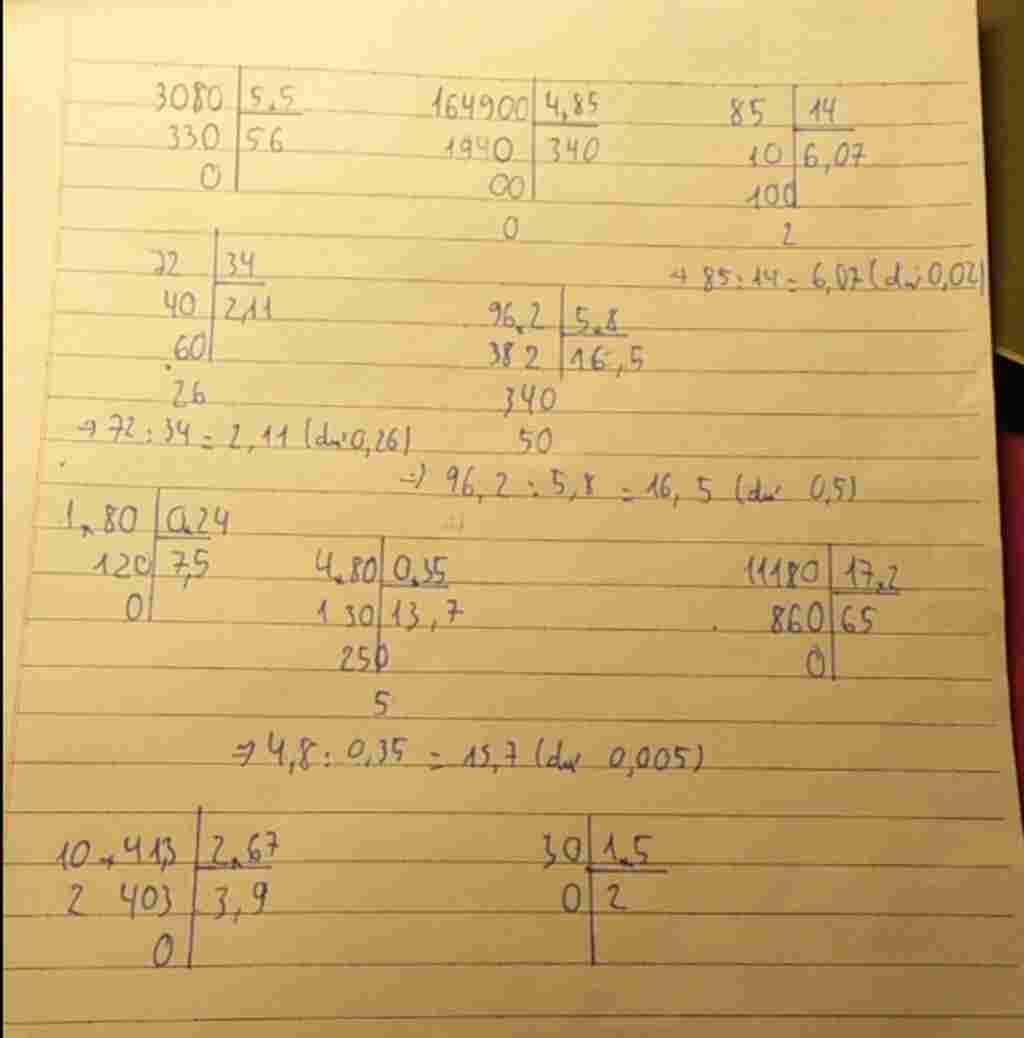 3080 5,5 164900 4,85 85 14
330 56 1940 340 10 6,07
0 00 100
0 2
72 34 → 85:14 = 6,07 (dư 0,02)
40 2,11 96,2 5,8
60 382 16,5
26 340
→ 72:34 = 2,11 (dư 0,26) 50
⇒ 96,2 : 5,8 = 16,5 (dư 0,5)
1,80 0,24
120 7,5 4,80 0,35 11180 17,2
0 1 30 13,7 860 65
250 0
5
⇒ 4,8 : 0,35 = 13,7 (dư 0,005)
10,413 2,67 30 1,5
2 403 3,9 0 2
0